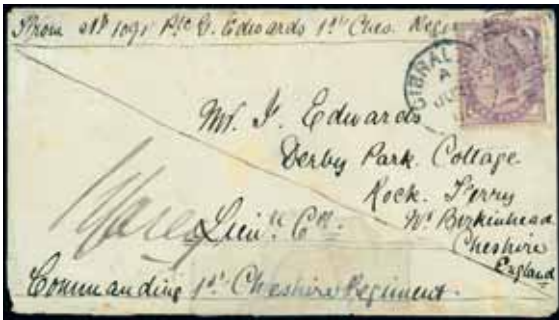 From No 1091 Pte G. Edwards 1st Ches. Regi
GIBRAL
A
JU
Mr. J. Edwards
Derby Park. Cottage
Rock. Ferry
Nr Birkinhead
Cheshire
England
Lieut Col.
Commanding 1st Cheshire Regiment.